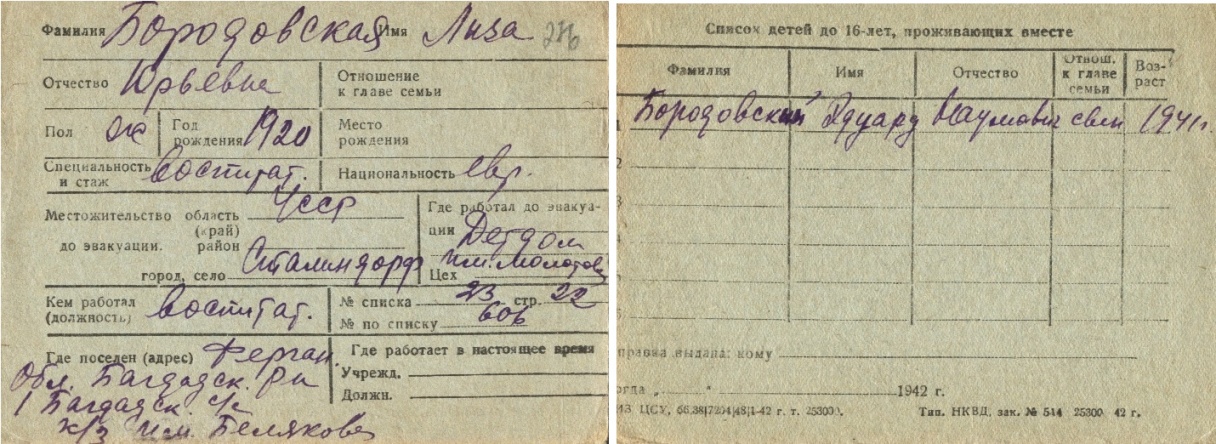 Фамилия Бородовская Имя Лиза 276
Отчество Юрьевна Отношение к главе семьи
Пол ж Год рождения 1920 Место рождения
Специальность и стаж воспитат. Национальность евр.
Местожительство область (край) УССР
до эвакуации. район
город, село Сталиндорф
Где работал до эвакуа-
ции Детдом
им. Молотова
Цех
Кем работал (должность) воспитат.
№ списка 23 стр. 22
№ по списку 606
Где поселен (адрес) Ферган.
Обл. Багдадск. р-н
1 Багдадск. с/с
к/з им. Белякова
Где работает в настоящее время
Учрежд.
Должн.
Список детей до 16-лет, проживающих вместе
Фамилия Имя Отчество Отнош. к главе семьи Воз-раст
1 Бородовский Эдуард Наумович сын 1941г.
2
3
4
5
6
правка выдана: кому
огда " 1942 г.
ИЗ ЦСУ, 1-42 г. т. 253000. Тип. НКВД, зак. № 514 25300 42 г.